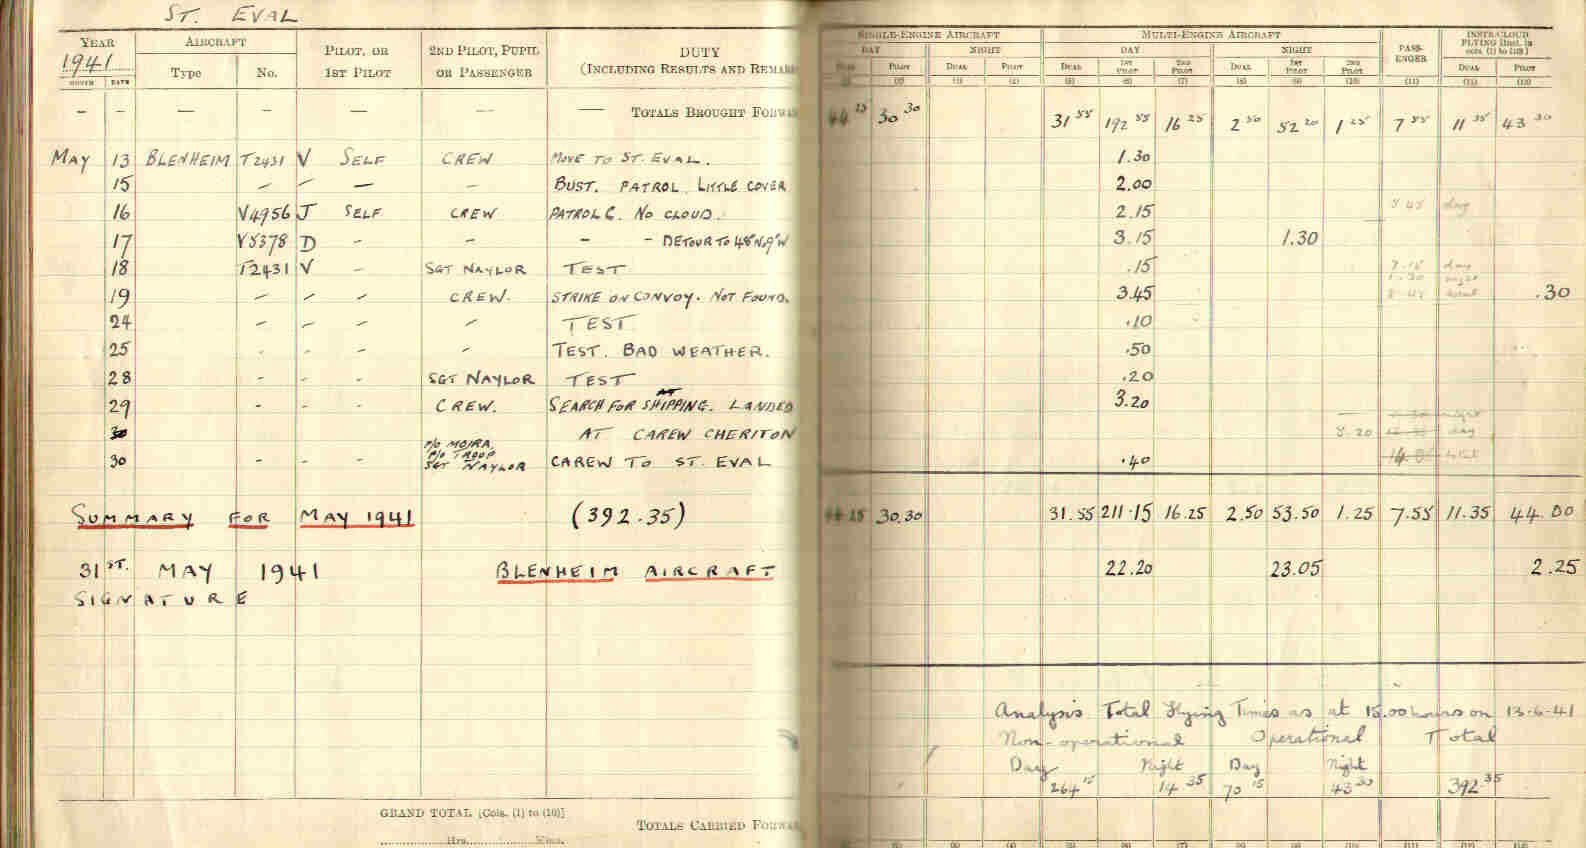 ST. EVAL
YEAR AIRCRAFT PILOT, OR 2ND PILOT, PUPIL DUTY SINGLE-ENGINE AIRCRAFT MULTI-ENGINE AIRCRAFT PASS- INSTR/CLOUD
1941 1ST PILOT OR PASSENGER (INCLUDING RESULTS AND REMAR DAY NIGHT DAY NIGHT ENGER FLYING [Incl. in
Type No. cols. (1) to (10)]
MONTH DATE PILOT DUAL PILOT DUAL 1ST PILOT 2ND PILOT DUAL 1ST PILOT 2ND PILOT DUAL PILOT
(2) (3) (4) (5) (6) (7) (8) (9) (10) (11) (12) (13)
— — — — — — — TOTALS BROUGHT FORWA 44 15 30 30 31 55 192 55 16 25 2 50 52 20 1 25 7 55 11 35 43 30
MAY 13 BLENHEIM T2431 V SELF CREW MOVE TO ST. EVAL. 1.30
15 — — — — BUST. PATROL. LITTLE COVER 2.00
16 V4956 J SELF CREW PATROL C. NO CLOUD. 2.15 5 45 day
17 V5378 D - - - - DETOUR TO 48°N.9°W 3.15 1.30
18 T2431 V - SGT NAYLOR TEST .15 day
19 - - - CREW. STRIKE ON CONVOY. NOT FOUND. 3.45 .30
24 - - - - TEST .10
25 - - - - TEST. BAD WEATHER. .50
28 - - - SGT NAYLOR TEST .20
29 - - - CREW. SEARCH FOR SHIPPING. LANDED 3.20
30 AT CAREW CHERITON 5.20 day
P/O MOIRA,
P/O TROOP
30 - - - SGT NAYLOR CAREW TO ST. EVAL .40 total
SUMMARY FOR MAY 1941 (392.35) 44.15 30.30 31.55 211.15 16.25 2.50 53.50 1.25 7.55 11.35 44.00
31ST. MAY 1941 BLENHEIM AIRCRAFT 22.20 23.05 2.25
SIGNATURE
Analysis Total Flying Times as at 15.00 hours on 13-6-41
Non-operational Operational Total
Day Night Day Night
264 15 14 35 70 15 43 30 392 35
GRAND TOTAL [Cols. (1) to (10)]
TOTALS CARRIED FORWA
Hrs. Mins.